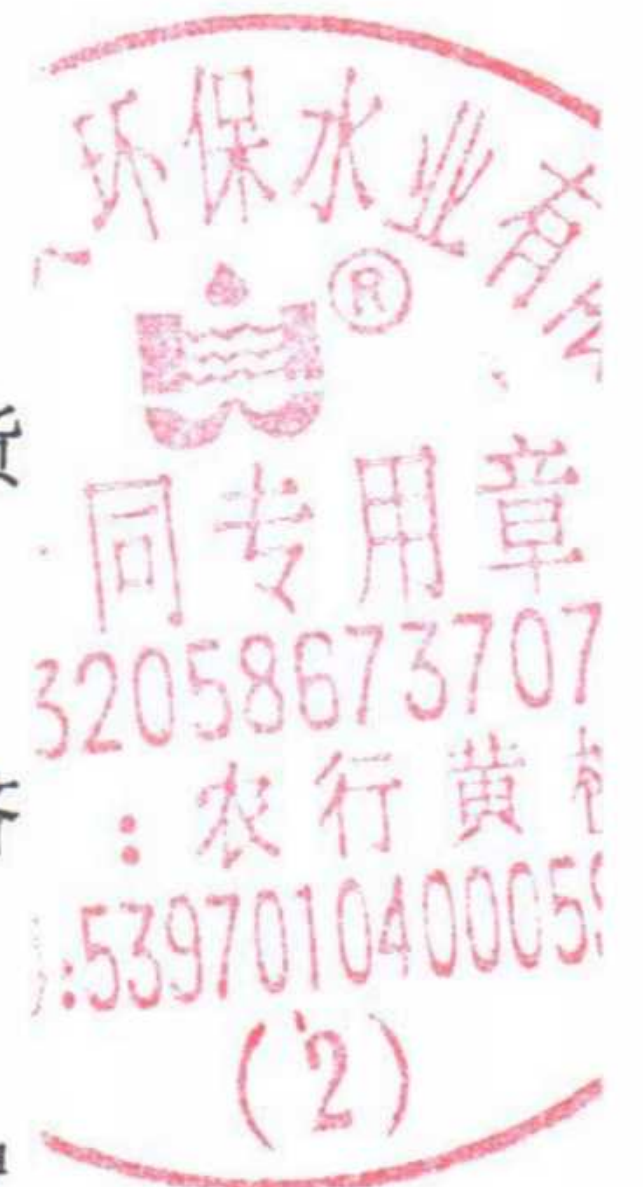 环保水业有
®
同专用章
32058673707
:农行黄
:539701040005
(2)